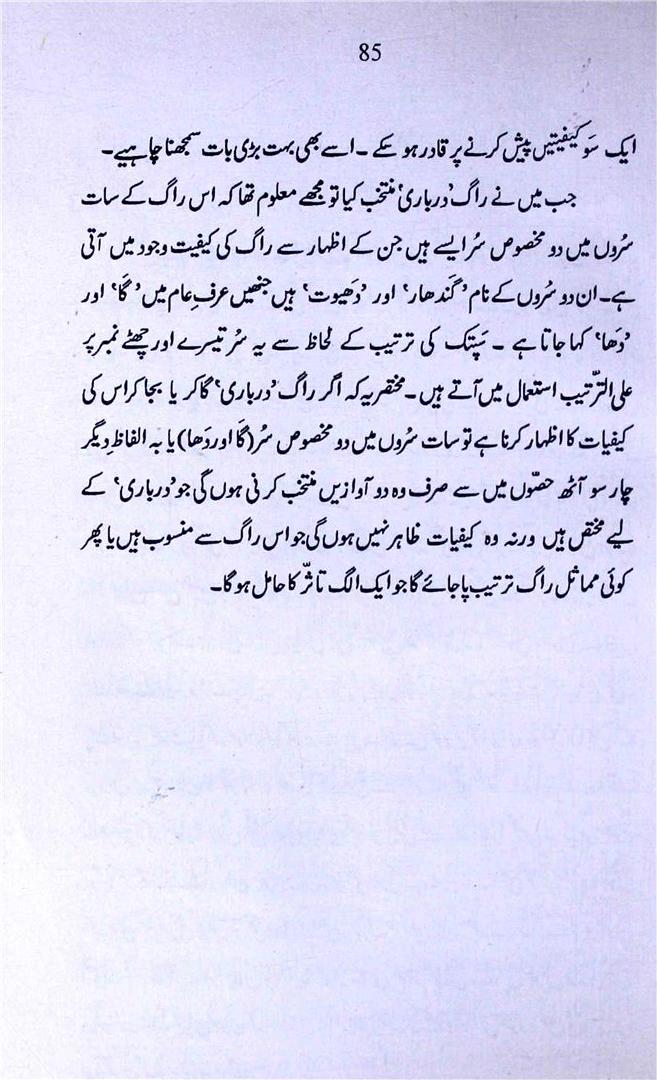 85
ایک سَو کیفیتیں پیش کرنے پر قادر ہو سکے ۔ اسے بھی بہت بڑی بات سمجھنا چاہیے ۔
جب میں نے راگ ’درباری‘ منتخب کیا تو مجھے معلوم تھا کہ اس راگ کے سات
سُروں میں دو مخصوص سُر ایسے ہیں جن کے اظہار سے راگ کی کیفیت وجود میں آتی
ہے۔ ان دو سُروں کے نام ’گندھار‘ اور ’دَھیوت‘ ہیں جنھیں عرفِ عام میں ’گا‘ اور
’دَھا‘ کہا جاتا ہے ۔ سَپتک کی ترتیب کے لحاظ سے یہ سُر تیسرے اور چھٹے نمبر پر
علی التّرتیب استعمال میں آتے ہیں ۔ مختصر یہ کہ اگر راگ ’درباری‘ گا کر یا بجا کر اس کی
کیفیات کا اظہار کرنا ہے تو سات سُروں میں دو مخصوص سُر (گا اور دَھا) یا بہ الفاظِ دیگر
چار سو آٹھ حصّوں میں سے صرف وہ دو آوازیں منتخب کرنی ہوں گی جو ’درباری‘ کے
لیے مختص ہیں ورنہ وہ کیفیات ظاہر نہیں ہوں گی جو اس راگ سے منسوب ہیں یا پھر
کوئی مماثل راگ ترتیب پا جائے گا جو ایک الگ تاثّر کا حامل ہو گا۔